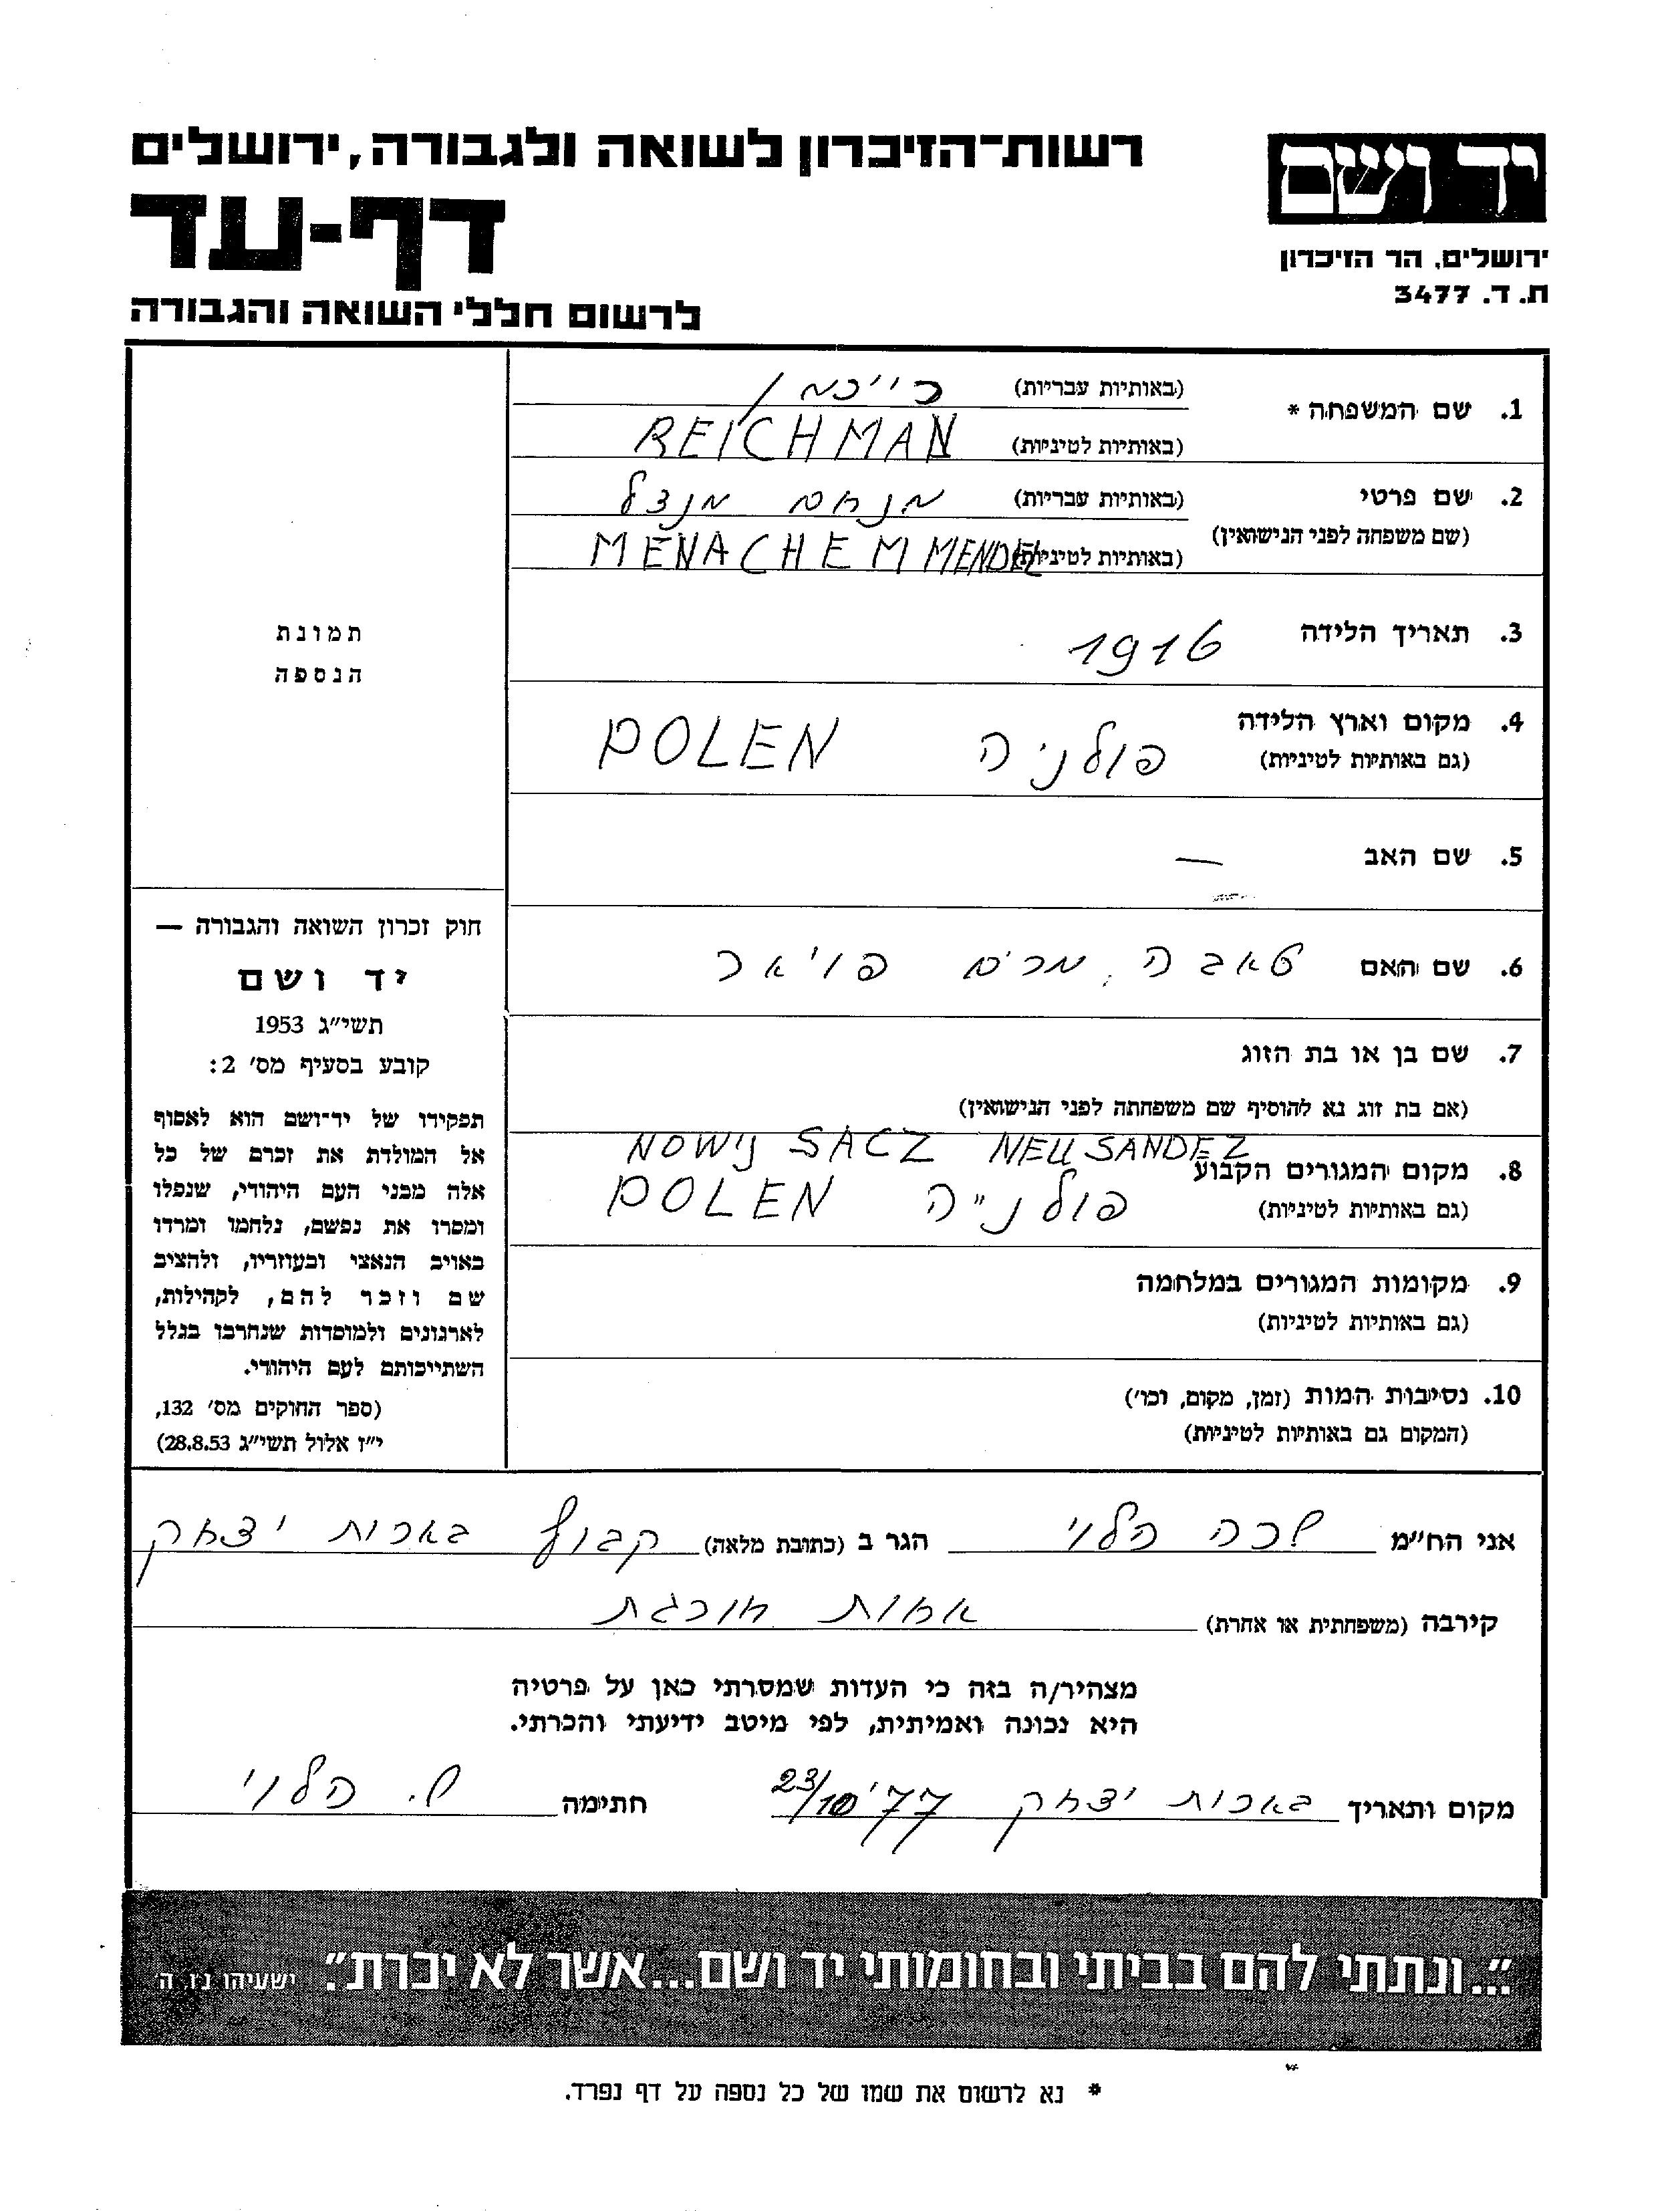 רשות־הזיכרון לשואה ולגבורה, ירושלים
יד ושם
דף-עד
ירושלים, הר הזיכרון
ת.ד. 3477
לרשום חללי השואה והגבורה
1. שם המשפחה *
(באותיות עבריות) רייכמן
(באותיות לטיניות) REICHMAN
2. שם פרטי
(שם משפחה לפני הנישואין)
(באותיות עבריות) מנחם מנדל
(באותיות לטיניות) MENACHEM MENDEL
3. תאריך הלידה 1916
4. מקום וארץ הלידה
(גם באותיות לטיניות)
פולניה POLEN
5. שם האב —
6. שם האם טאבה, מרים פויאר
7. שם בן או בת הזוג
(אם בת זוג נא להוסיף שם משפחתה לפני הנישואין)
NOWIJ SACZ NEU SANDEZ
8. מקום המגורים הקבוע
(גם באותיות לטיניות)
פולנ״ה POLEN
9. מקומות המגורים במלחמה
(גם באותיות לטיניות)
10. נסיבות המות (זמן, מקום, וכו׳)
(המקום גם באותיות לטיניות)
תמונת
הנספה
חוק זכרון השואה והגבורה —
יד ושם
תשי״ג 1953
קובע בסעיף מס׳ 2:
תפקידו של יד־ושם הוא לאסוף
אל המולדת את זכרם של כל
אלה מבני העם היהודי, שנפלו
ומסרו את נפשם, נלחמו ומרדו
באויב הנאצי ובעוזריו, ולהציב
שם וזכר להם, לקהילות,
לארגונים ולמוסדות שנחרבו בגלל
השתייכותם לעם היהודי.
(ספר החוקים מס׳ 132,
י״ז אלול תשי״ג 28.8.53)
אני הח״מ שרה הלוי הגר ב (כתובת מלאה) קבוץ בארות יצחק
קירבה (משפחתית או אחרת) אחות חורגת
מצהיר/ה בזה כי העדות שמסרתי כאן על פרטיה
היא נכונה ואמיתית, לפי מיטב ידיעתי והכרתי.
מקום ותאריך בארות יצחק 23/10 '77 חתימה ש. הלוי
"...ונתתי להם בביתי ובחומותי יד ושם...אשר לא יכרת". ישעיהו נ״ו, ה
* נא לרשום את שמו של כל נספה על דף נפרד.